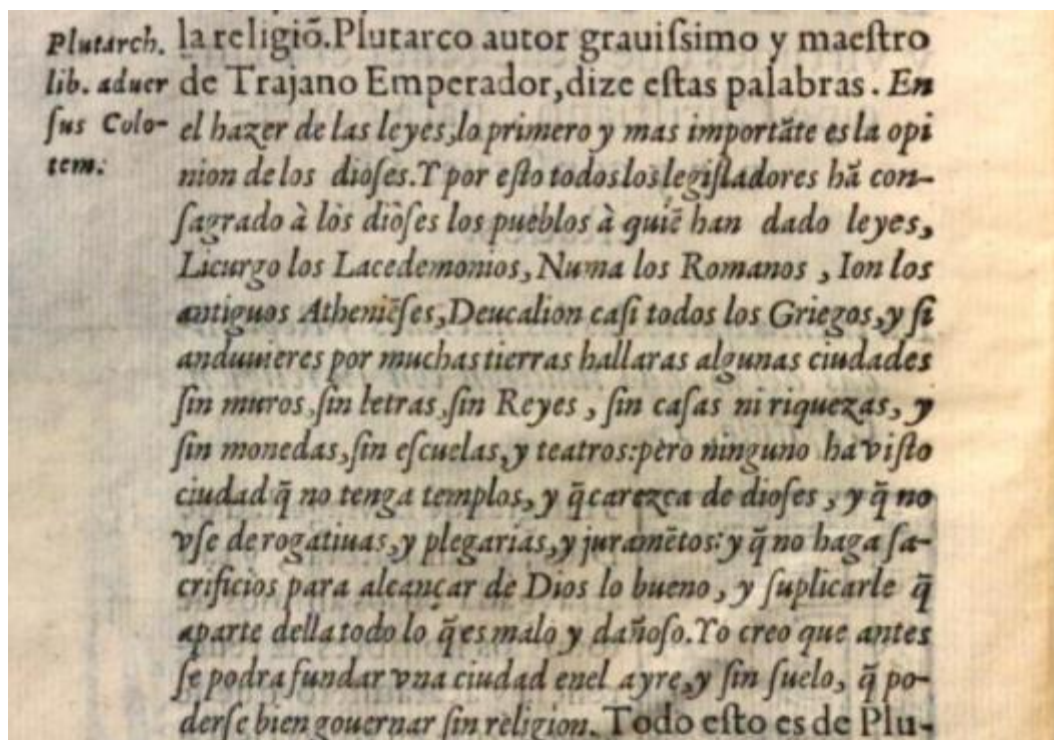 Plutarch.
lib. aduer
ſus Colo-
tem.
la religiõ. Plutarco autor grauiſsimo y maeſtro
de Trajano Emperador, dize eſtas palabras. En
el hazer de las leyes, lo primero y mas importãte es la opi
nion de los dioſes. Y por eſto todos los legiſladores hã con-
ſagrado à los dioſes los pueblos à quiẽ han dado leyes,
Licurgo los Lacedemonios, Numa los Romanos, Ion los
antiguos Atheniẽſes, Deucalion caſi todos los Griegos, y ſi
anduuieres por muchas tierras hallaras algunas ciudades
ſin muros, ſin letras, ſin Reyes, ſin caſas ni riquezas, y
ſin monedas, ſin eſcuelas, y teatros: pero ninguno ha viſto
ciudad q̃ no tenga templos, y q̃ carezca de dioſes, y q̃ no
vſe de rogatiuas, y plegarias, y juramẽtos: y q̃ no haga ſa-
crificios para alcançar de Dios lo bueno, y ſuplicarle q̃
aparte della todo lo q̃ es malo y dañoſo. Yo creo que antes
ſe podra fundar vna ciudad enel ayre, y ſin ſuelo, q̃ po-
derſe bien gouernar ſin religion. Todo eſto es de Plu-